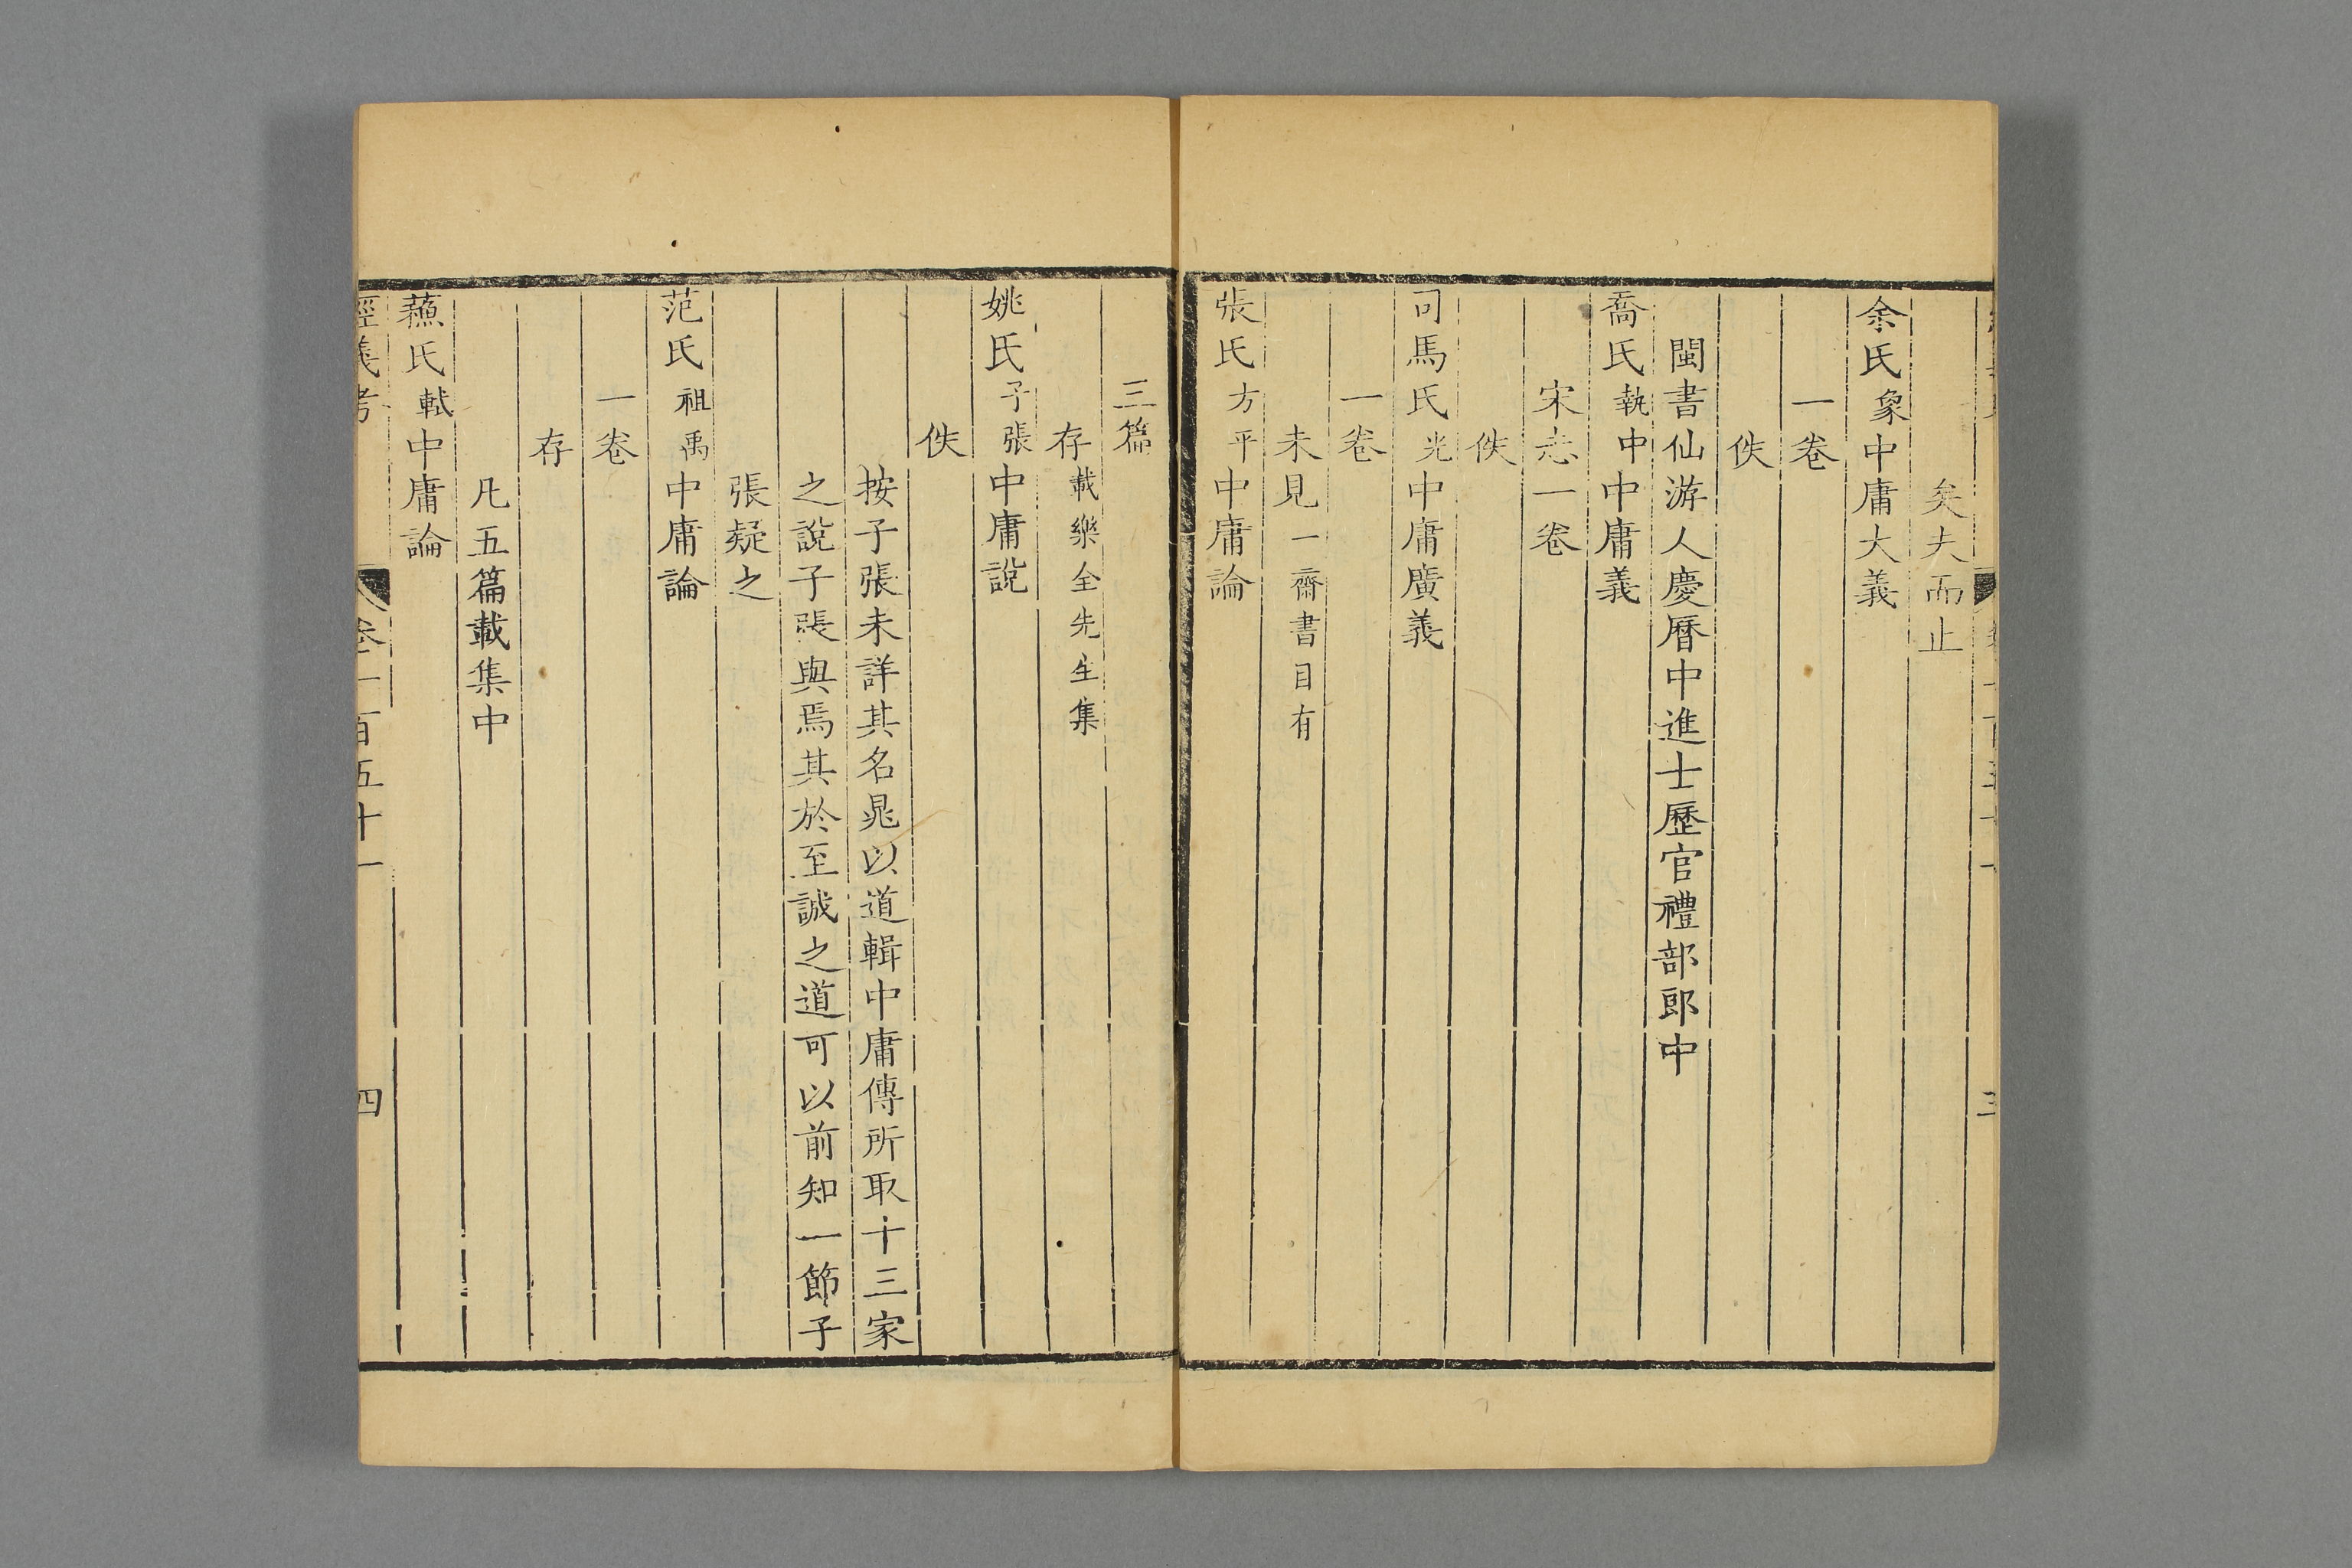 矣夫而止
余氏象中庸大義
一卷
佚
閩書仙游人慶曆中進士歷官禮部郎中
喬氏執中中庸義
宋志一卷
佚
司馬氏光中庸廣義
一卷
未見一齋書目有
張氏方平中庸論
三篇
存載樂全先生集
姚氏子張中庸說
佚
按子張未詳其名晁以道輯中庸傳所取十三家
之說子張與焉其於至誠之道可以前知一節子
張疑之
范氏祖禹中庸論
一卷
存
凡五篇載集中
蘓氏軾中庸論
經義考 卷一百五十一 四